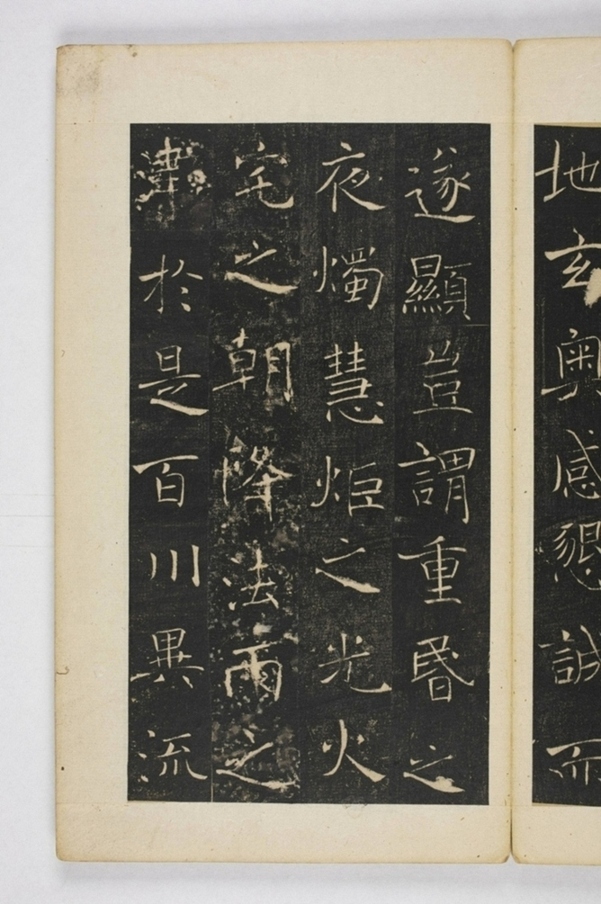 地玄奧感懇誠而
遂顯豈謂重昬之
夜燭慧炬之光火
宅之朝降法雨之
澤於是百川異流